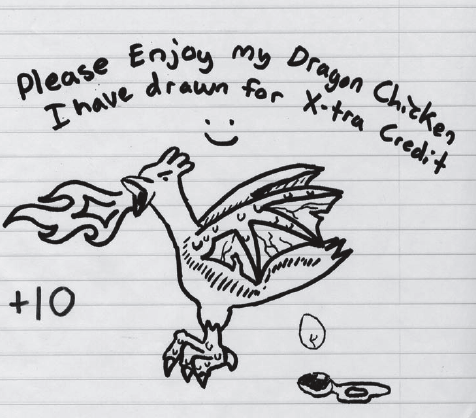 Please Enjoy my Dragon Chicken
I have drawn for X-tra Credit
+10